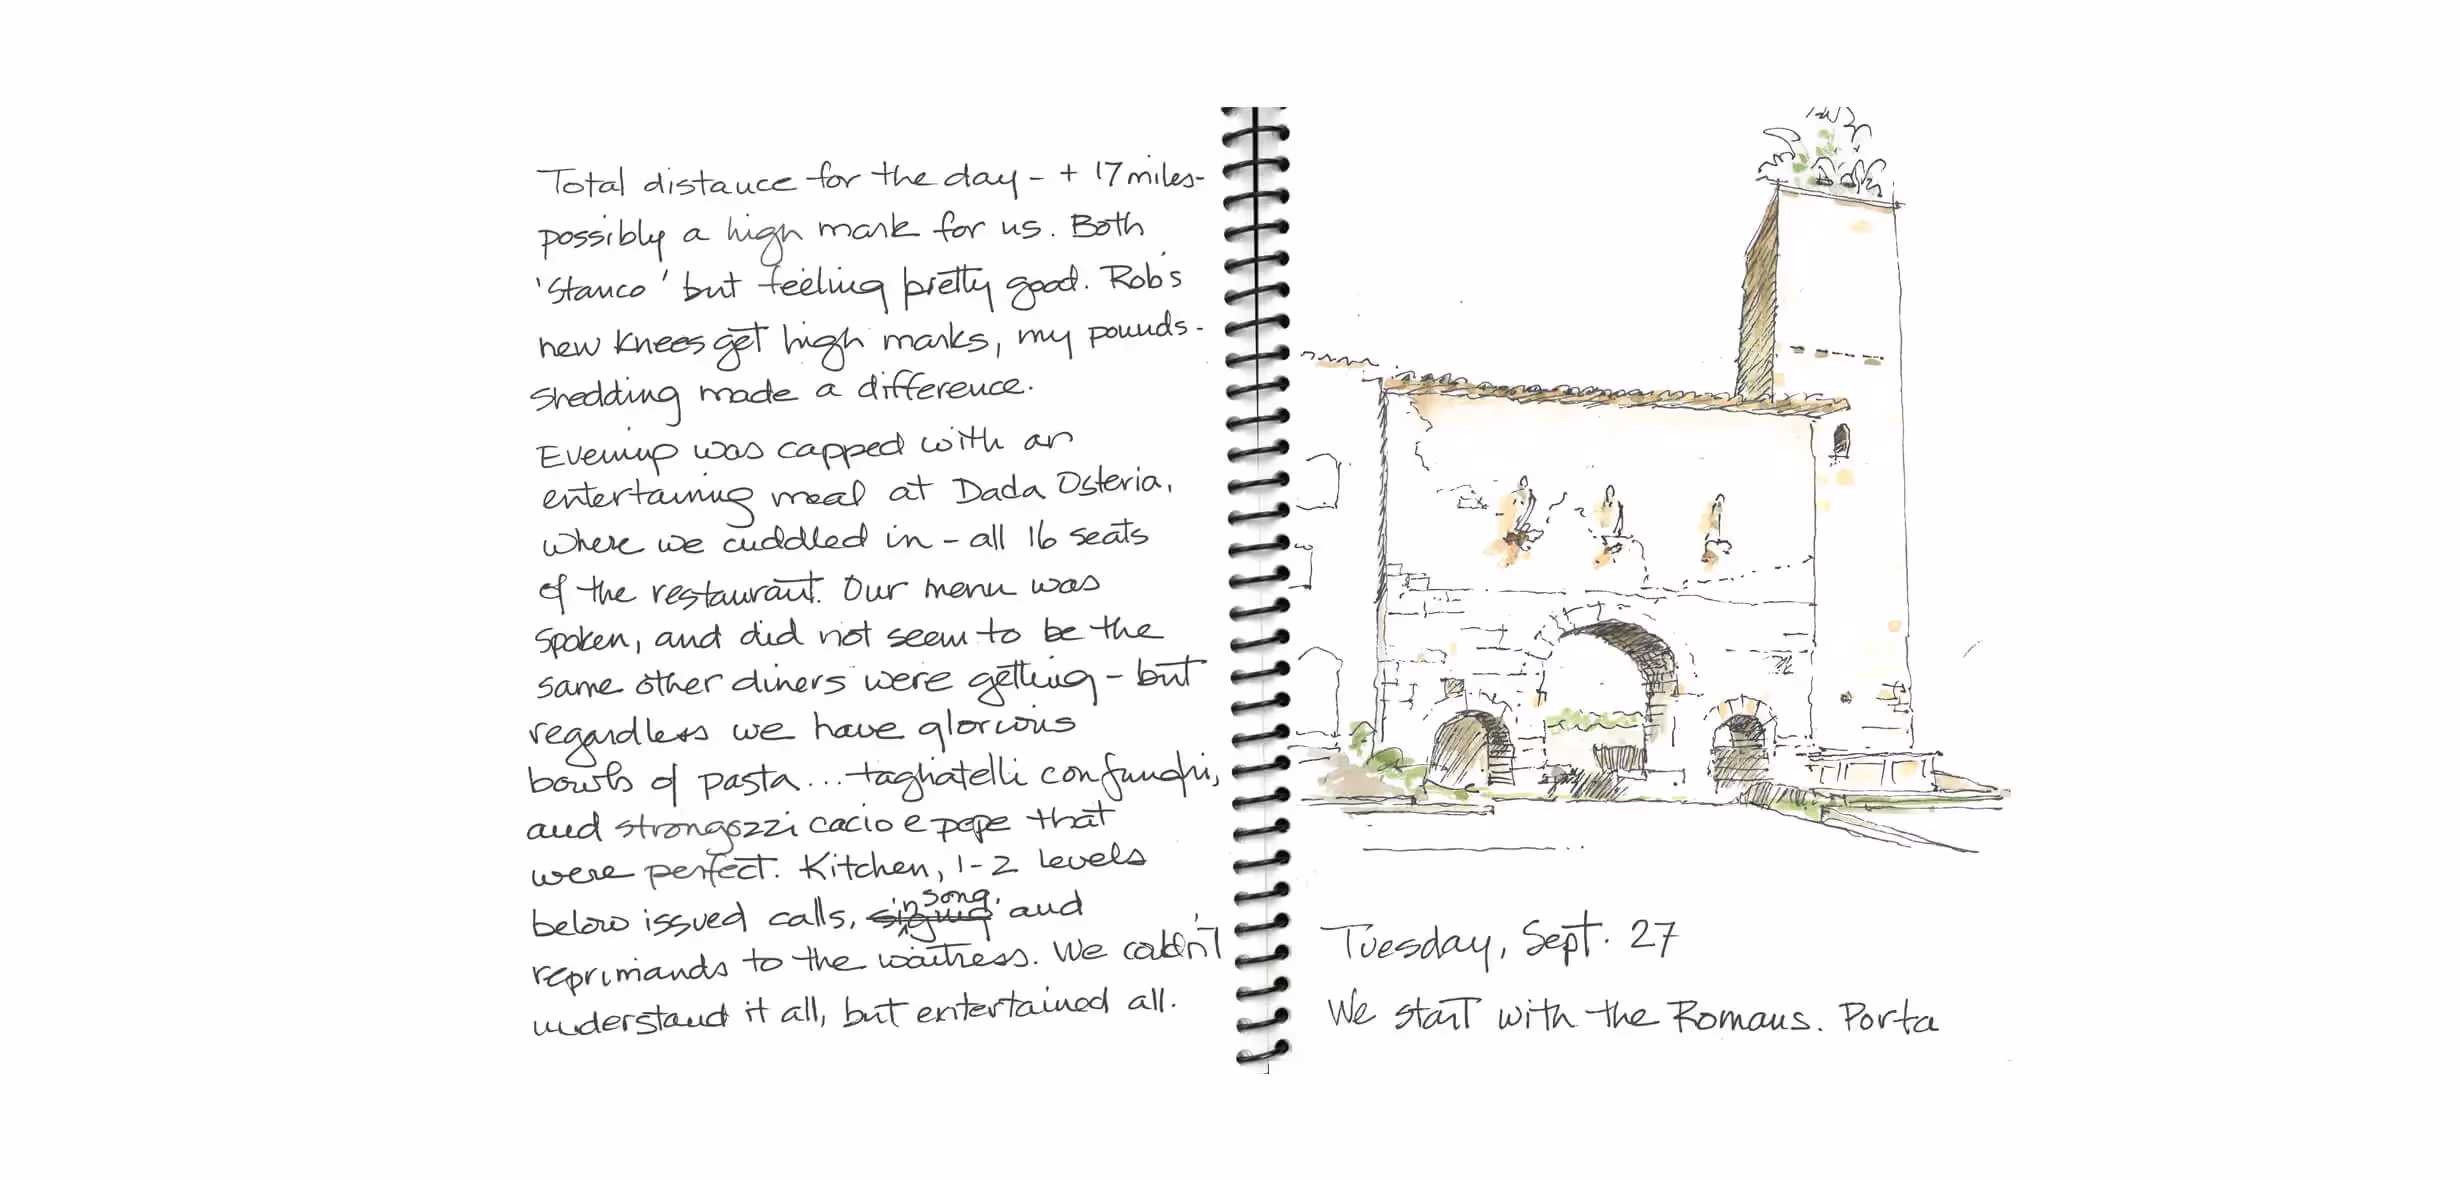 Total distance for the day - + 17 miles-
possibly a high mark for us. Both
'stanco' but feeling pretty good. Rob's
new knees get high marks, my pounds-
shedding made a difference.
Evening was capped with an
entertaining meal at Dada Osteria,
where we cuddled in - all 16 seats
of the restaurant. Our menu was
spoken, and did not seem to be the
same other diners were getting - but
regardless we have glorious
bowls of pasta... tagliatelli con funghi,
and strongozzi cacio e pepe that
were perfect. Kitchen, 1-2 levels
below issued calls, in song, and
reprimands to the waitress. We couldn't
understand it all, but entertained all.
Tuesday, Sept. 27
We start with the Romans. Porta